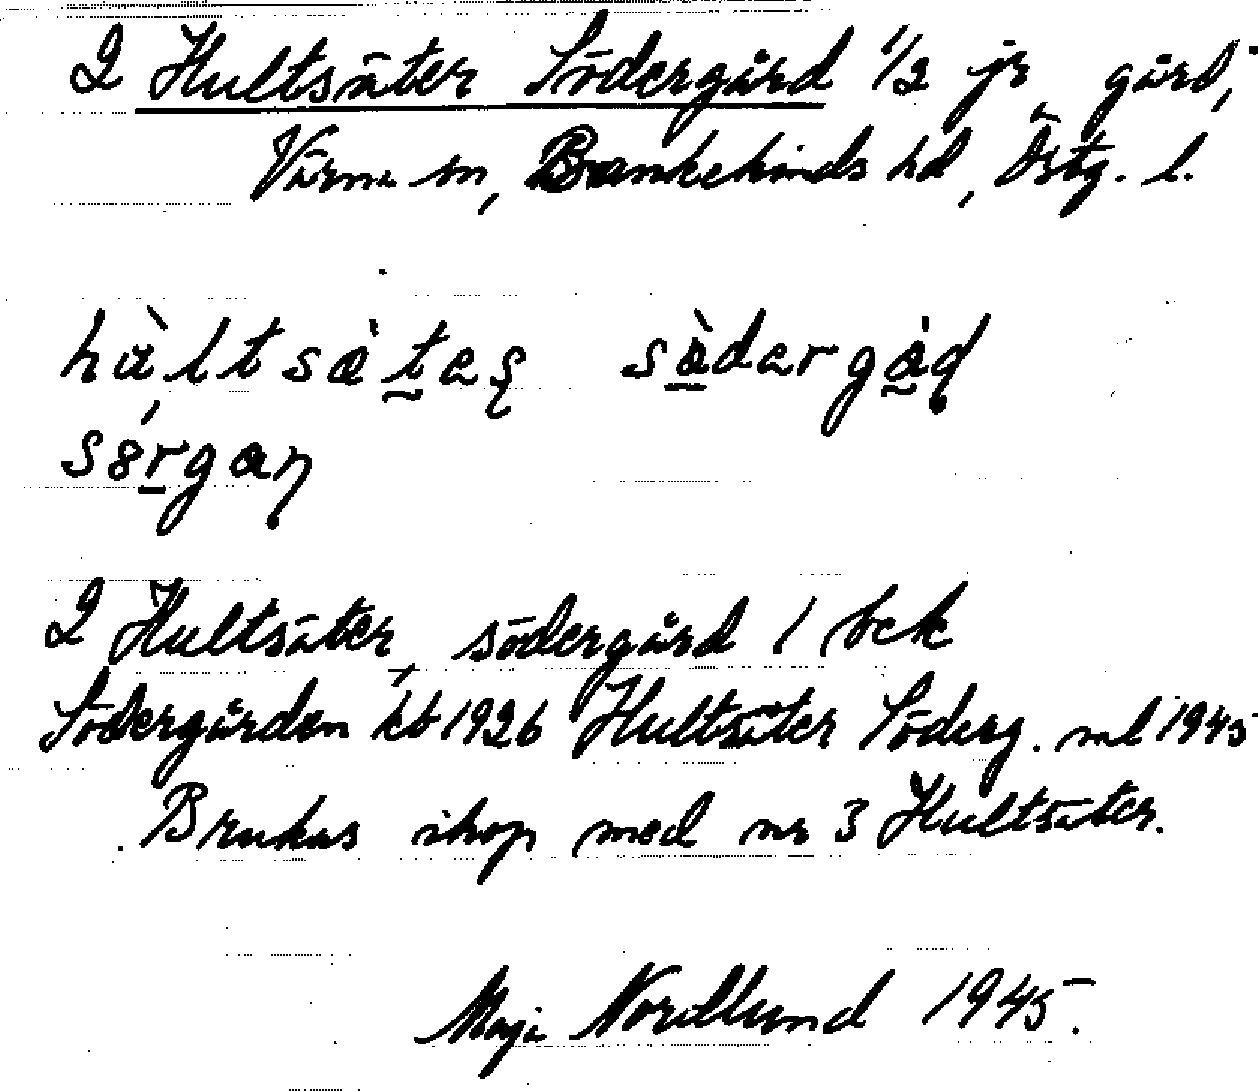 2 Hultsäter Södergård 1/2 jr gård,
Värna sn, Bankekinds hd, Östg. l.
hàltsätes södergåd
sørgan
2 Hultsäter, södergård 1/ bek
Södergården kb 1926 Hultsäter Söderg. ml 1945
Brukas ihop med nr 3 Hultsäter.
Maja Nordlund 1945.